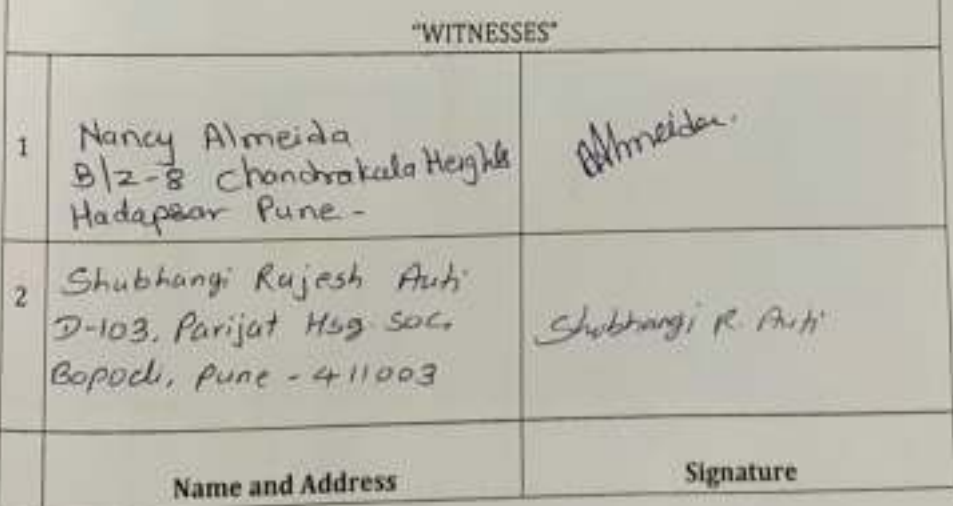 "WITNESSES"
1
Nancy Almeida
B/2-8 Chandrakala Heights
Hadapsar Pune -
Almeida.
2
Shubhangi Rajesh Auti
D-103, Parijat Hsg Soc,
Bopodi, Pune - 411003
Shubhangi R. Auti
Name and Address
Signature